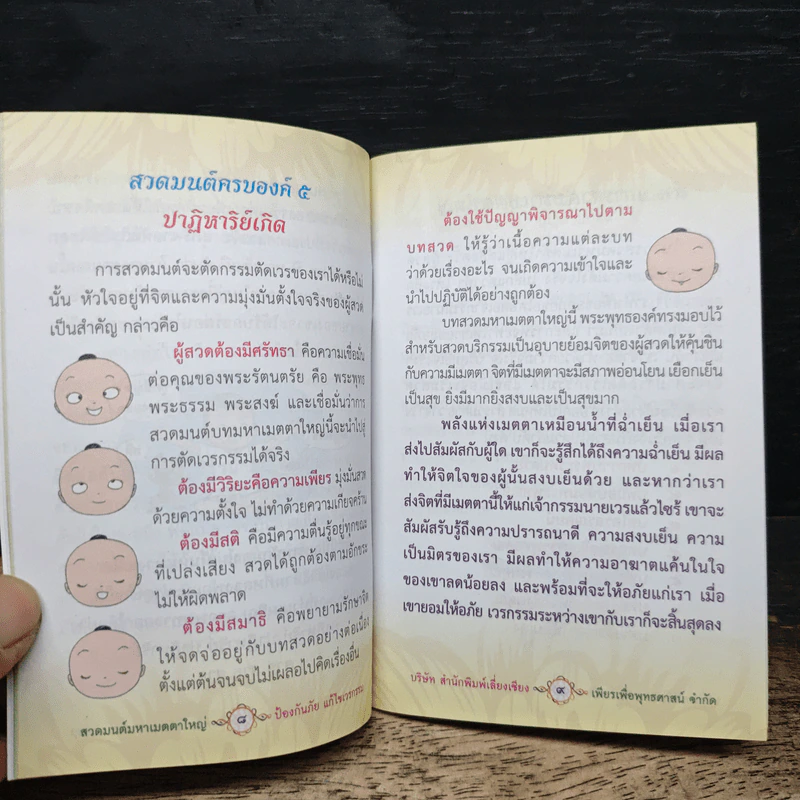 สวดมนต์ครบองค์ ๕
ปาฏิหาริย์เกิด
การสวดมนต์จะตัดกรรมตัดเวรของเราได้หรือไม่
นั้น หัวใจอยู่ที่จิตและความมุ่งมั่นตั้งใจจริงของผู้สวด
เป็นสำคัญ กล่าวคือ
ผู้สวดต้องมีศรัทธา คือความเชื่อมั่น
ต่อคุณของพระรัตนตรัย คือ พระพุทธ
พระธรรม พระสงฆ์ และเชื่อมั่นว่าการ
สวดมนต์บทมหาเมตตาใหญ่นี้จะนำไปสู่
การตัดเวรกรรมได้จริง
ต้องมีวิริยะคือความเพียร มุ่งมั่นสวด
ด้วยความตั้งใจ ไม่ทำด้วยความเกียจคร้าน
ต้องมีสติ คือมีความตื่นรู้อยู่ทุกขณะ
ที่เปล่งเสียง สวดได้ถูกต้องตามอักขระ
ไม่ให้ผิดพลาด
ต้องมีสมาธิ คือพยายามรักษาจิต
ให้จดจ่ออยู่กับบทสวดอย่างต่อเนื่อง
ตั้งแต่ต้นจนจบไม่เผลอไปคิดเรื่องอื่น
สวดมนต์มหาเมตตาใหญ่ ๘ ป้องกันภัย แก้ไขเวรกรรม
ต้องใช้ปัญญาพิจารณาไปตาม
บทสวด ให้รู้ว่าเนื้อความแต่ละบท
ว่าด้วยเรื่องอะไร จนเกิดความเข้าใจและ
นำไปปฏิบัติได้อย่างถูกต้อง
บทสวดมหาเมตตาใหญ่นี้ พระพุทธองค์ทรงมอบไว้
สำหรับสวดบริกรรมเป็นอุบายย้อมจิตของผู้สวดให้คุ้นชิน
กับความมีเมตตา จิตที่มีเมตตาจะมีสภาพอ่อนโยน เยือกเย็น
เป็นสุข ยิ่งมีมากยิ่งสงบและเป็นสุขมาก
พลังแห่งเมตตาเหมือนน้ำที่ฉ่ำเย็น เมื่อเรา
ส่งไปสัมผัสกับผู้ใด เขาก็จะรู้สึกได้ถึงความฉ่ำเย็น มีผล
ทำให้จิตใจของผู้นั้นสงบเย็นด้วย และหากว่าเรา
ส่งจิตที่มีเมตตานี้ให้แก่เจ้ากรรมนายเวรแล้วไซร้ เขาจะ
สัมผัสรับรู้ถึงความปรารถนาดี ความสงบเย็น ความ
เป็นมิตรของเรา มีผลทำให้ความอาฆาตแค้นในใจ
ของเขาลดน้อยลง และพร้อมที่จะให้อภัยแก่เรา เมื่อ
เขายอมให้อภัย เวรกรรมระหว่างเขากับเราก็จะสิ้นสุดลง
บริษัท สำนักพิมพ์เลี่ยงเชียง ๙ เพียรเพื่อพุทธศาสน์ จำกัด